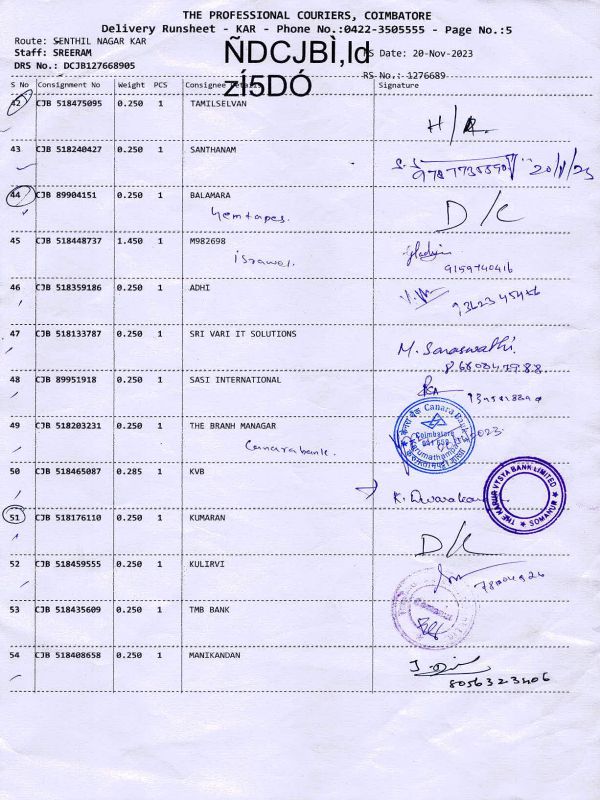 THE PROFESSIONAL COURIERS, COIMBATORE
Delivery Runsheet - KAR - Phone No.:0422-3505555 - Page No.:5
Route: SENTHIL NAGAR KAR
Staff: SREERAM
DRS No.: DCJB127668905
ÑDCJBÌ,Id
zí5DÓ
RS Date: 20-Nov-2023
RS No.: 1276689
S No Consignment No Weight PCS Consignee Details Signature
42 CJB 518475095 0.250 1 TAMILSELVAN
43 CJB 518240427 0.250 1 SANTHANAM
20/11/23
44 CJB 89904151 0.250 1 BALAMARA
D/C
45 CJB 518448737 1.450 1 M982698
9159740416
46 CJB 518359186 0.250 1 ADHI
47 CJB 518133787 0.250 1 SRI VARI IT SOLUTIONS
M. Saraswathi
48 CJB 89951918 0.250 1 SASI INTERNATIONAL
49 CJB 518203231 0.250 1 THE BRANH MANAGAR
Canarabank.
Canara Bank
Coimbatore
50 CJB 518465087 0.285 1 KVB
THE KARUR VYSYA BANK LIMITED
SOMANUR
51 CJB 518176110 0.250 1 KUMARAN
D/C
52 CJB 518459555 0.250 1 KULIRVI
53 CJB 518435609 0.250 1 TMB BANK
54 CJB 518408658 0.250 1 MANIKANDAN
8056323406